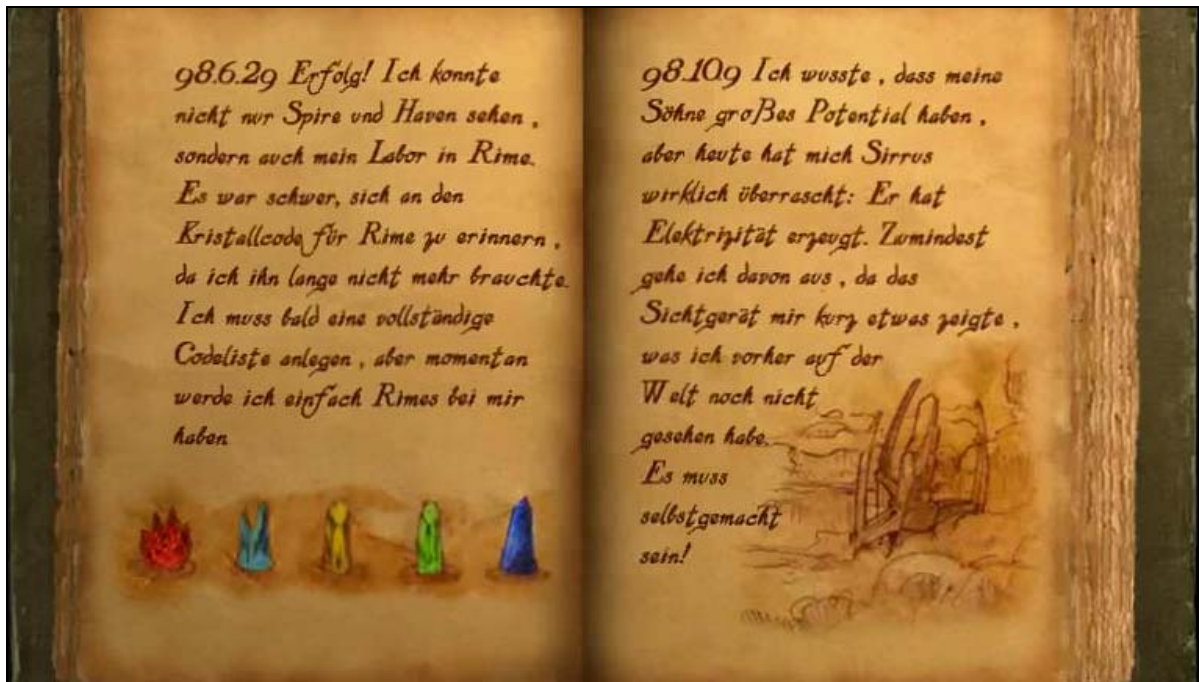 98.6.29 Erfolg! Ich konnte
nicht nur Spire und Haven sehen,
sondern auch mein Labor in Rime.
Es war schwer, sich an den
Kristallcode für Rime zu erinnern,
da ich ihn lange nicht mehr brauchte.
Ich muss bald eine vollständige
Codeliste anlegen, aber momentan
werde ich einfach Rimes bei mir
haben
98.10.9 Ich wusste, dass meine
Söhne großes Potential haben,
aber heute hat mich Sirrus
wirklich überrascht: Er hat
Elektrizität erzeugt. Zumindest
gehe ich davon aus, da das
Sichtgerät mir kurz etwas zeigte,
was ich vorher auf der
Welt noch nicht
gesehen habe.
Es muss
selbstgemacht
sein!